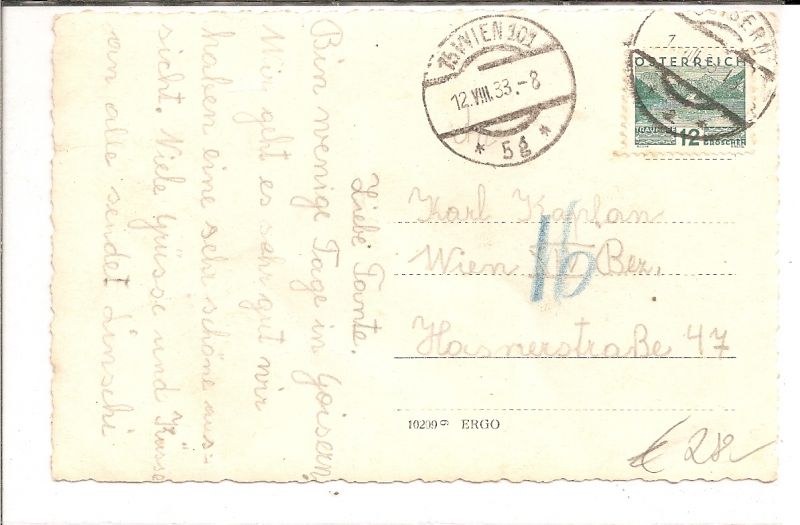 Liebe Tante.
Bin wenige Tage in Goisern,
Mir geht es sehr gut wir
haben eine sehr schöne aus-
sicht. Viele Grüsse und Küsse
an alle sendet
15 WIEN 101
12.VIII.33.-8
* 5g *
ÖSTERREICH
12
GROSCHEN
Karl Kaplan
Wien Bez.
Hasnerstraße 47
16
10209 9 ERGO
€ 28